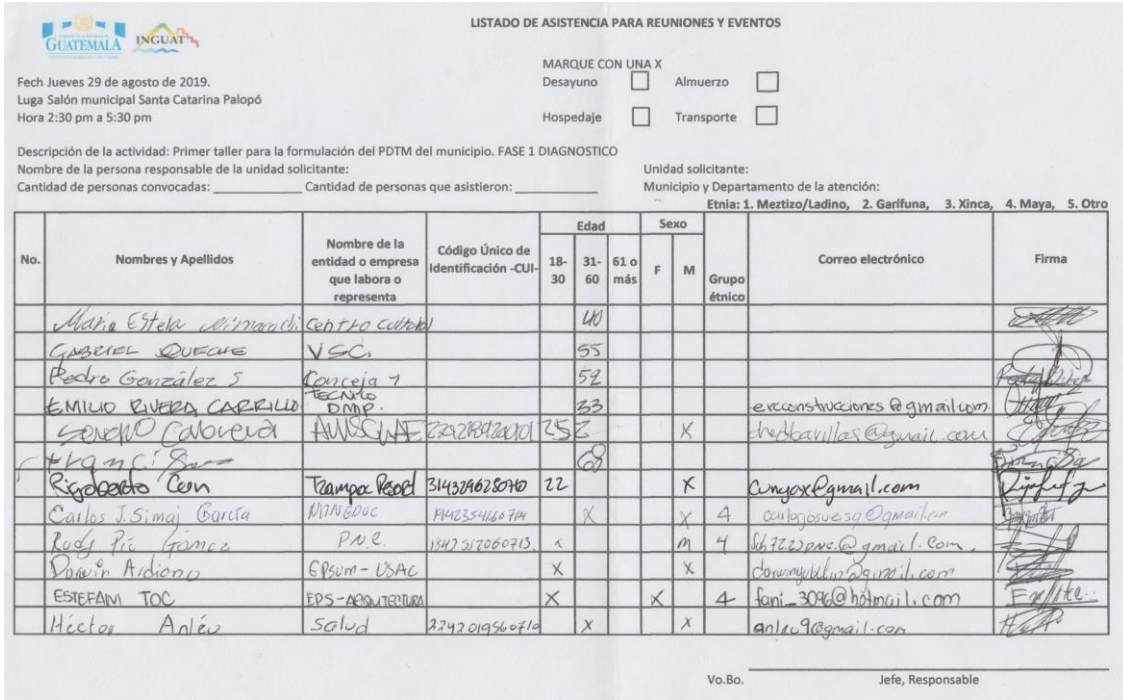 GUATEMALA INGUAT
LISTADO DE ASISTENCIA PARA REUNIONES Y EVENTOS
MARQUE CON UNA X
Fech Jueves 29 de agosto de 2019.
Desayuno Almuerzo
Luga Salón municipal Santa Catarina Palopó
Hora 2:30 pm a 5:30 pm
Hospedaje Transporte
Descripción de la actividad: Primer taller para la formulación del PDTM del municipio. FASE 1 DIAGNOSTICO
Nombre de la persona responsable de la unidad solicitante: Unidad solicitante:
Cantidad de personas convocadas: Cantidad de personas que asistieron: Municipio y Departamento de la atención:
Etnia: 1. Meztizo/Ladino, 2. Garífuna, 3. Xinca, 4. Maya, 5. Otro
No. Nombres y Apellidos Nombre de la entidad o empresa que labora o representa Código Único de Identificación -CUI- Edad 18-30 31-60 61 o más Sexo F M Grupo étnico Correo electrónico Firma
Maria Estela Centro Cultural 40
GABRIEL QUECHE VSC. 55
Pedro González S Conceja 1 52
EMILIO RIVERA CARRILLO TECNICO DMP. 33 ereconstrucciones@gmail.com
X @gmail.com
68
Rigoberto Cun Tzampoc Resort 22 X cunyax@gmail.com
Carlos J. Simaj García MINEDUC X X 4 carlosjosuesg@gmail.com
Rudy Pío Gómez P.N.C. x M 4
Darwin Ardiano EPSum - USAC X X
ESTEFANI TOC EPS-ARQUITECTURA X X 4 fani_3096@hotmail.com
Héctor Anléu Salud X X anleu9@gmail.com
Vo.Bo. Jefe, Responsable